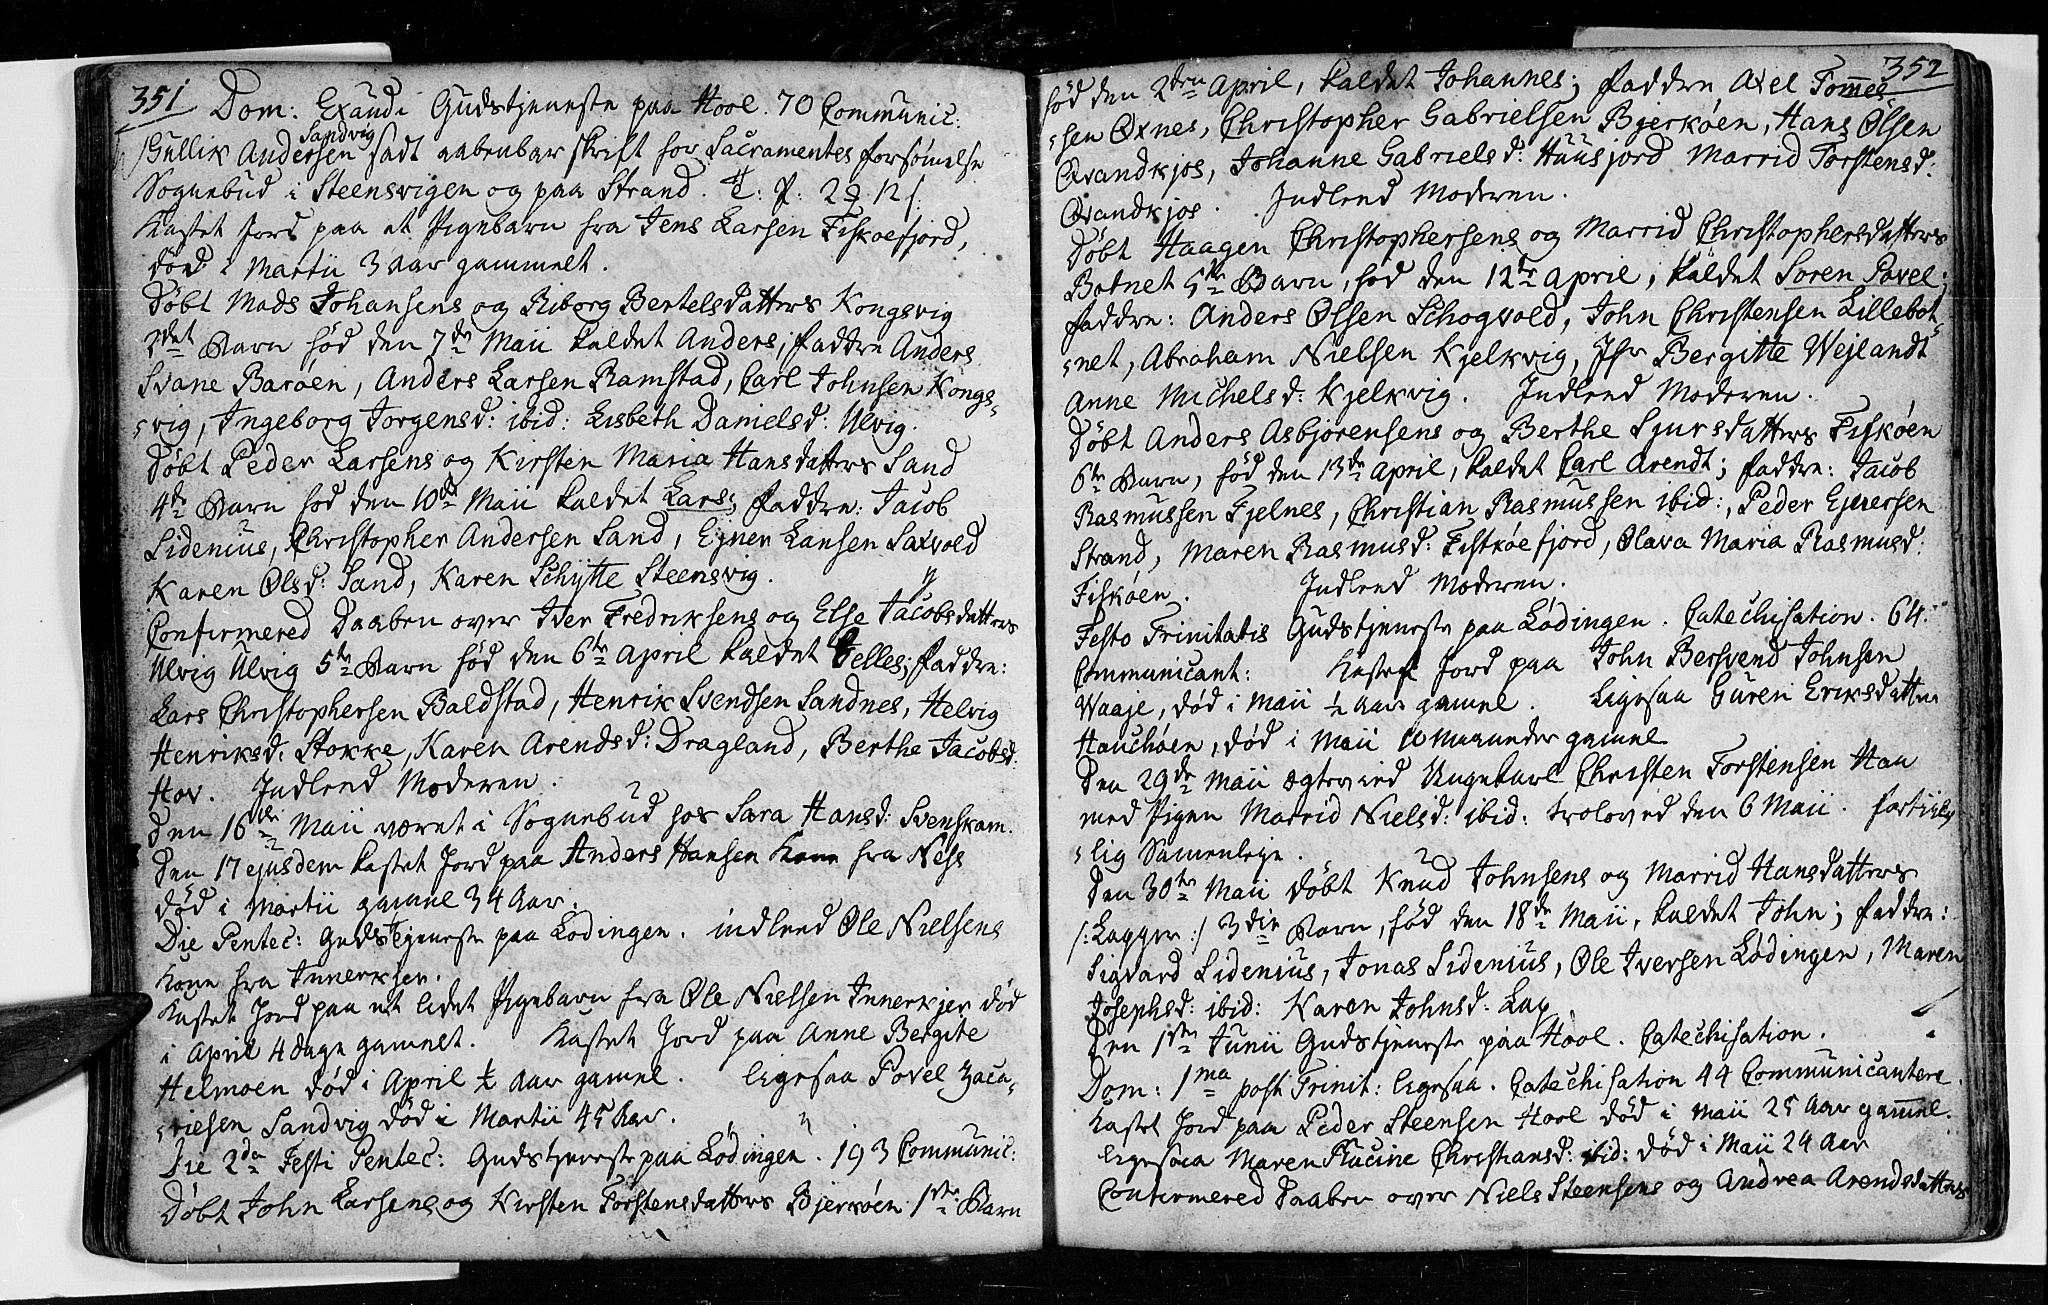 351
Dom: Exaudi Gudstjeneste paa Hool. 70 Communic:
Gullik Andersen Sandvig sadt aabenbar skrift for Sacramentes forsømelse
Sognebud i Steensvigen og paa Strand.
Kastet Jord paa et Pigebarn fra Jens Larsen Fiskøefjord,
død i Martii 3 aar gammelt.
Døbt Mads Johansens og Riborg Bertelsdatters Kongsvig
2det Barn fød den 7de Maii kaldet Anders; faddre Anders
Svane Barøen, Anders Larsen Ramstad, Carl Johnsen Kongs-
-vig, Ingeborg Jorgensd: ibid: Lisbeth Danielsd: Ulvig.
Døbt Peder Larsens og Kirsten Maria Hansdatters Sand
4de Barn fød den 10de Maii kaldet Lars; faddre: Jacob
Sidenius, Christopher Andersen Sand, Ejner Larsen Saxvold
Karen Olsd: Sand, Karen Schytte Steensvig.
Confirmered Daaben over Iver Fredriksens og Else Jacobsdatters
Ulvig Ulvig 5te Barn fød den 6te April kaldet Jelles; faddre:
Lars Christophersen Baldstad, Henrik Svendsen Sandnes, Helvig
Henriksd: Stokke, Karen Arendsd: Dragland, Berthe Jacobsd:
Hov. Indleed Moderen.
Den 16de Maii været i Sognebud hos Sara Hansd: Svenskam.
Den 17 ejusdem kastet Jord paa Anders Hansen fra Ness
død i Martii gammel 34 Aar.
Die Pentec: Gudstjeneste paa Lødingen. indleed Ole Nielsens
Kone fra Innerkjer.
Kastet Jord paa et lidet Pigebarn fra Ole Nielsen Innerkjer død
i April 4 dage gammelt. Kastet Jord paa Anne Bergite
Helmoen død i April ½ Aar gammel. ligesaa Povel Zaca-
-riesen Sandvig død i Martii 45 Aar.
Die 2da Festi Pentec: Gudstjeneste paa Lødingen. 193 Communic:
Døbt John Larsens og Kirsten Torstensdatters Bjerkøen 1ste Barn
352
fød den 2den April, kaldet Johannes; faddre Axel Tommes-
-sen Oxnes, Christopher Gabrielsen Bjerkøen, Hans Olsen
Qvandkjos, Johanne Gabrielsd: Huusjord Marrid Torstensd:
Qvandkjos. Indleed Moderen.
Døbt Haagen Christophersens og Marrid Christophersdatters
Botnet 5te Barn, fød den 12te April, kaldet Soren Povel;
faddre: Anders Olsen Schogvold, John Christensen Lillebot-
-net, Abraham Nielsen Kjelkvig, Jfr Bergitte Wejlandt
Anne Michelsd: Kjelkvig. Indleed Moderen.
Døbt Anders Asbjørensens og Berthe Sjursdatters Fiskøen
6te Barn, fød den 13de April, kaldet Carl Arendt; faddre: Jacob
Rasmussen Fjelnes, Christian Rasmussen ibid:, Peder Ejversen
Strand, Maren Rasmusd: Fiskøefjord, Olava Maria Rasmusd:
Fiskøen. Indleed Moderen.
Festo Trinitatis Gudstjeneste paa Lødingen. Catechisation. 64.
Communicant: Kastet Jord paa John Bersvend Johnsen
Waaje, død i Maii ½ Aar gammel. Ligesaa Guren Eriksdatter
død i Maii 10 Maaneder gammel
Den 29de Maii ægtevied Ungekarl Christen Torstensen Haa
med Pigen Marrid Nielsd: ibid: troloved den 6 Maii. fortiile
-lig Samenleje.
Den 30te Maii døbt Knud Johnsens og Marrid Hansdatters
/: Lagger :/ 3die Barn, fød den 18de Maii, kaldet John; faddre:
Sigvard Sidenius, Jonas Sidenius, Ole Iversen Lødingen, Maren
Josephsd: ibid: Karen Johnsd: Lag
Den 1ste Junii Gudstjeneste paa Hool. Catechisation.
Dom: 1ma post Trinit: ligesaa. Catechisation 44 Communicantere.
Kastet Jord paa Peder Steensen Hool død i Maii 25 Aar gammel.
ligesaa Maren Christiansd: ibid: død i Maii 24 Aar
Confirmered Daaben over Niels Steensens og Andrea Arendsdatters